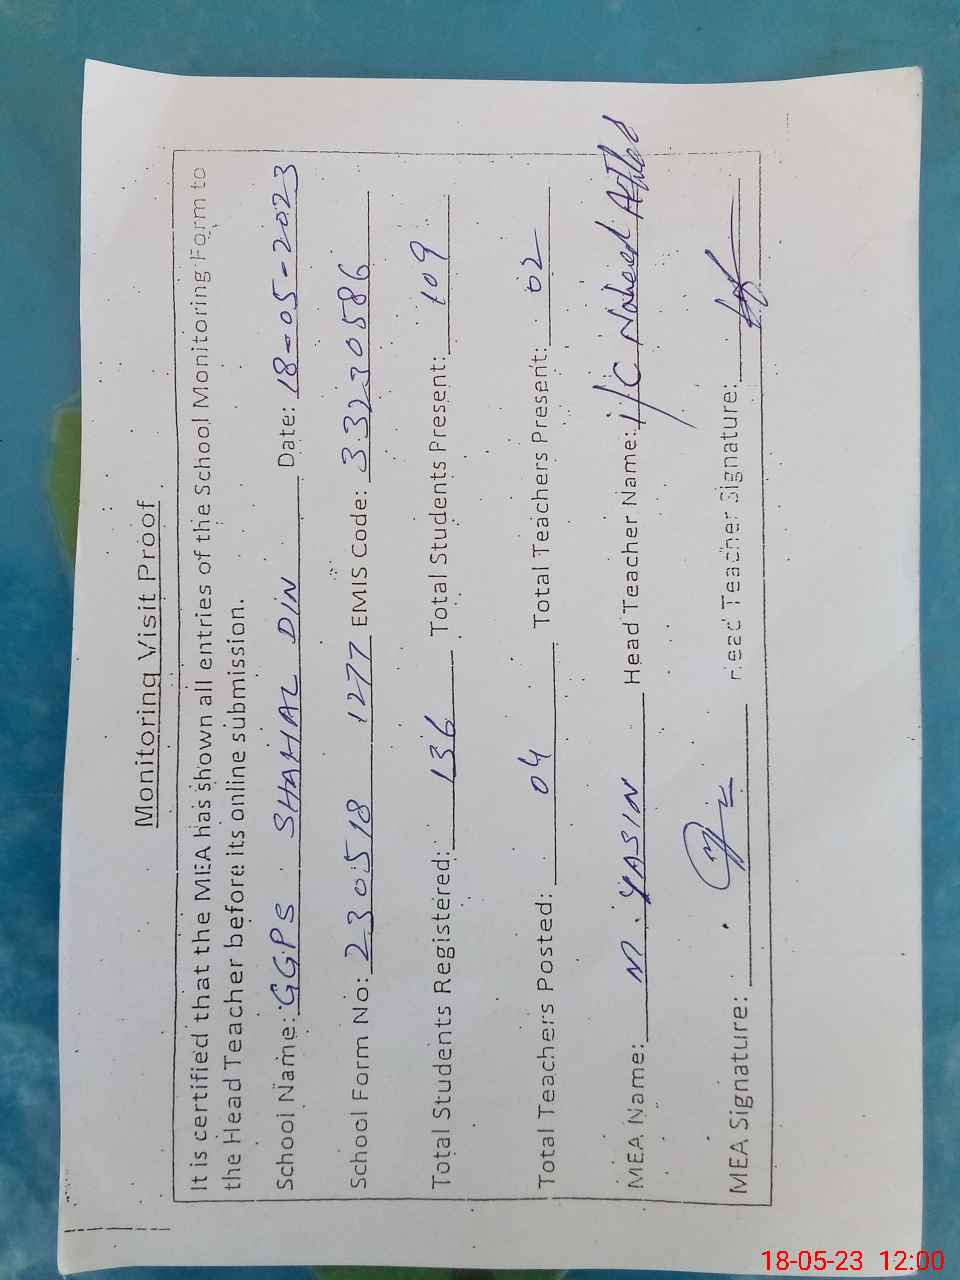 Monitoring Visit Proof
It is certified that the MEA has shown all entries of the School Monitoring Form to
the Head Teacher before its online submission.
School Name: GGPS SHAHAL DIN Date: 18-05-2023
School Form No: 230518 1277 EMIS Code: 33230586
Total Students Registered: 136 Total Students Present: 109
Total Teachers Posted: 04 Total Teachers Present: 02
MEA Name: M. YASIN Head Teacher Name: i/C Naheed
MEA Signature: Head Teacher Signature:
18-05-23 12:00